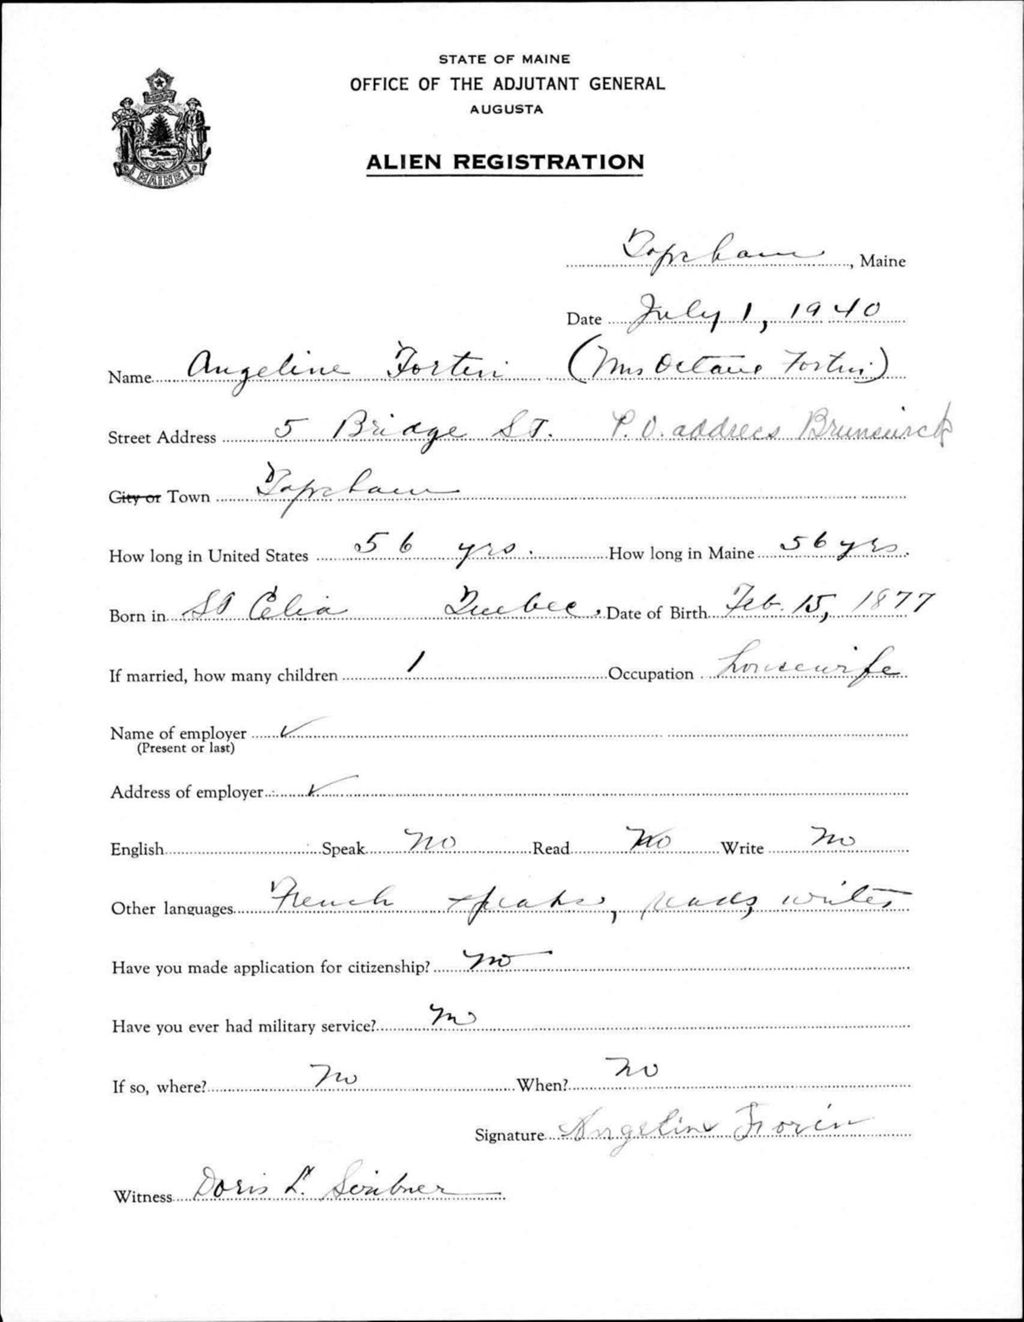 STATE OF MAINE
OFFICE OF THE ADJUTANT GENERAL
AUGUSTA
ALIEN REGISTRATION
MAINE
Topsham, Maine
Date July 1, 1940
Name Angeline Fortin (Mrs Octave Fortin)
Street Address 5 Bridge St. P.O. address Brunswick
City or Town Topsham
How long in United States 56 yrs. How long in Maine 56 yrs.
Born in St Celia Quebec. Date of Birth Feb. 15, 1877
If married, how many children 1 Occupation housewife
Name of employer ✓
(Present or last)
Address of employer ✓
English Speak No Read No Write No
Other languages French speaks, reads, writes
Have you made application for citizenship? no
Have you ever had military service? no
If so, where? no When? no
Signature Angeline
Witness Doris L. Scribner